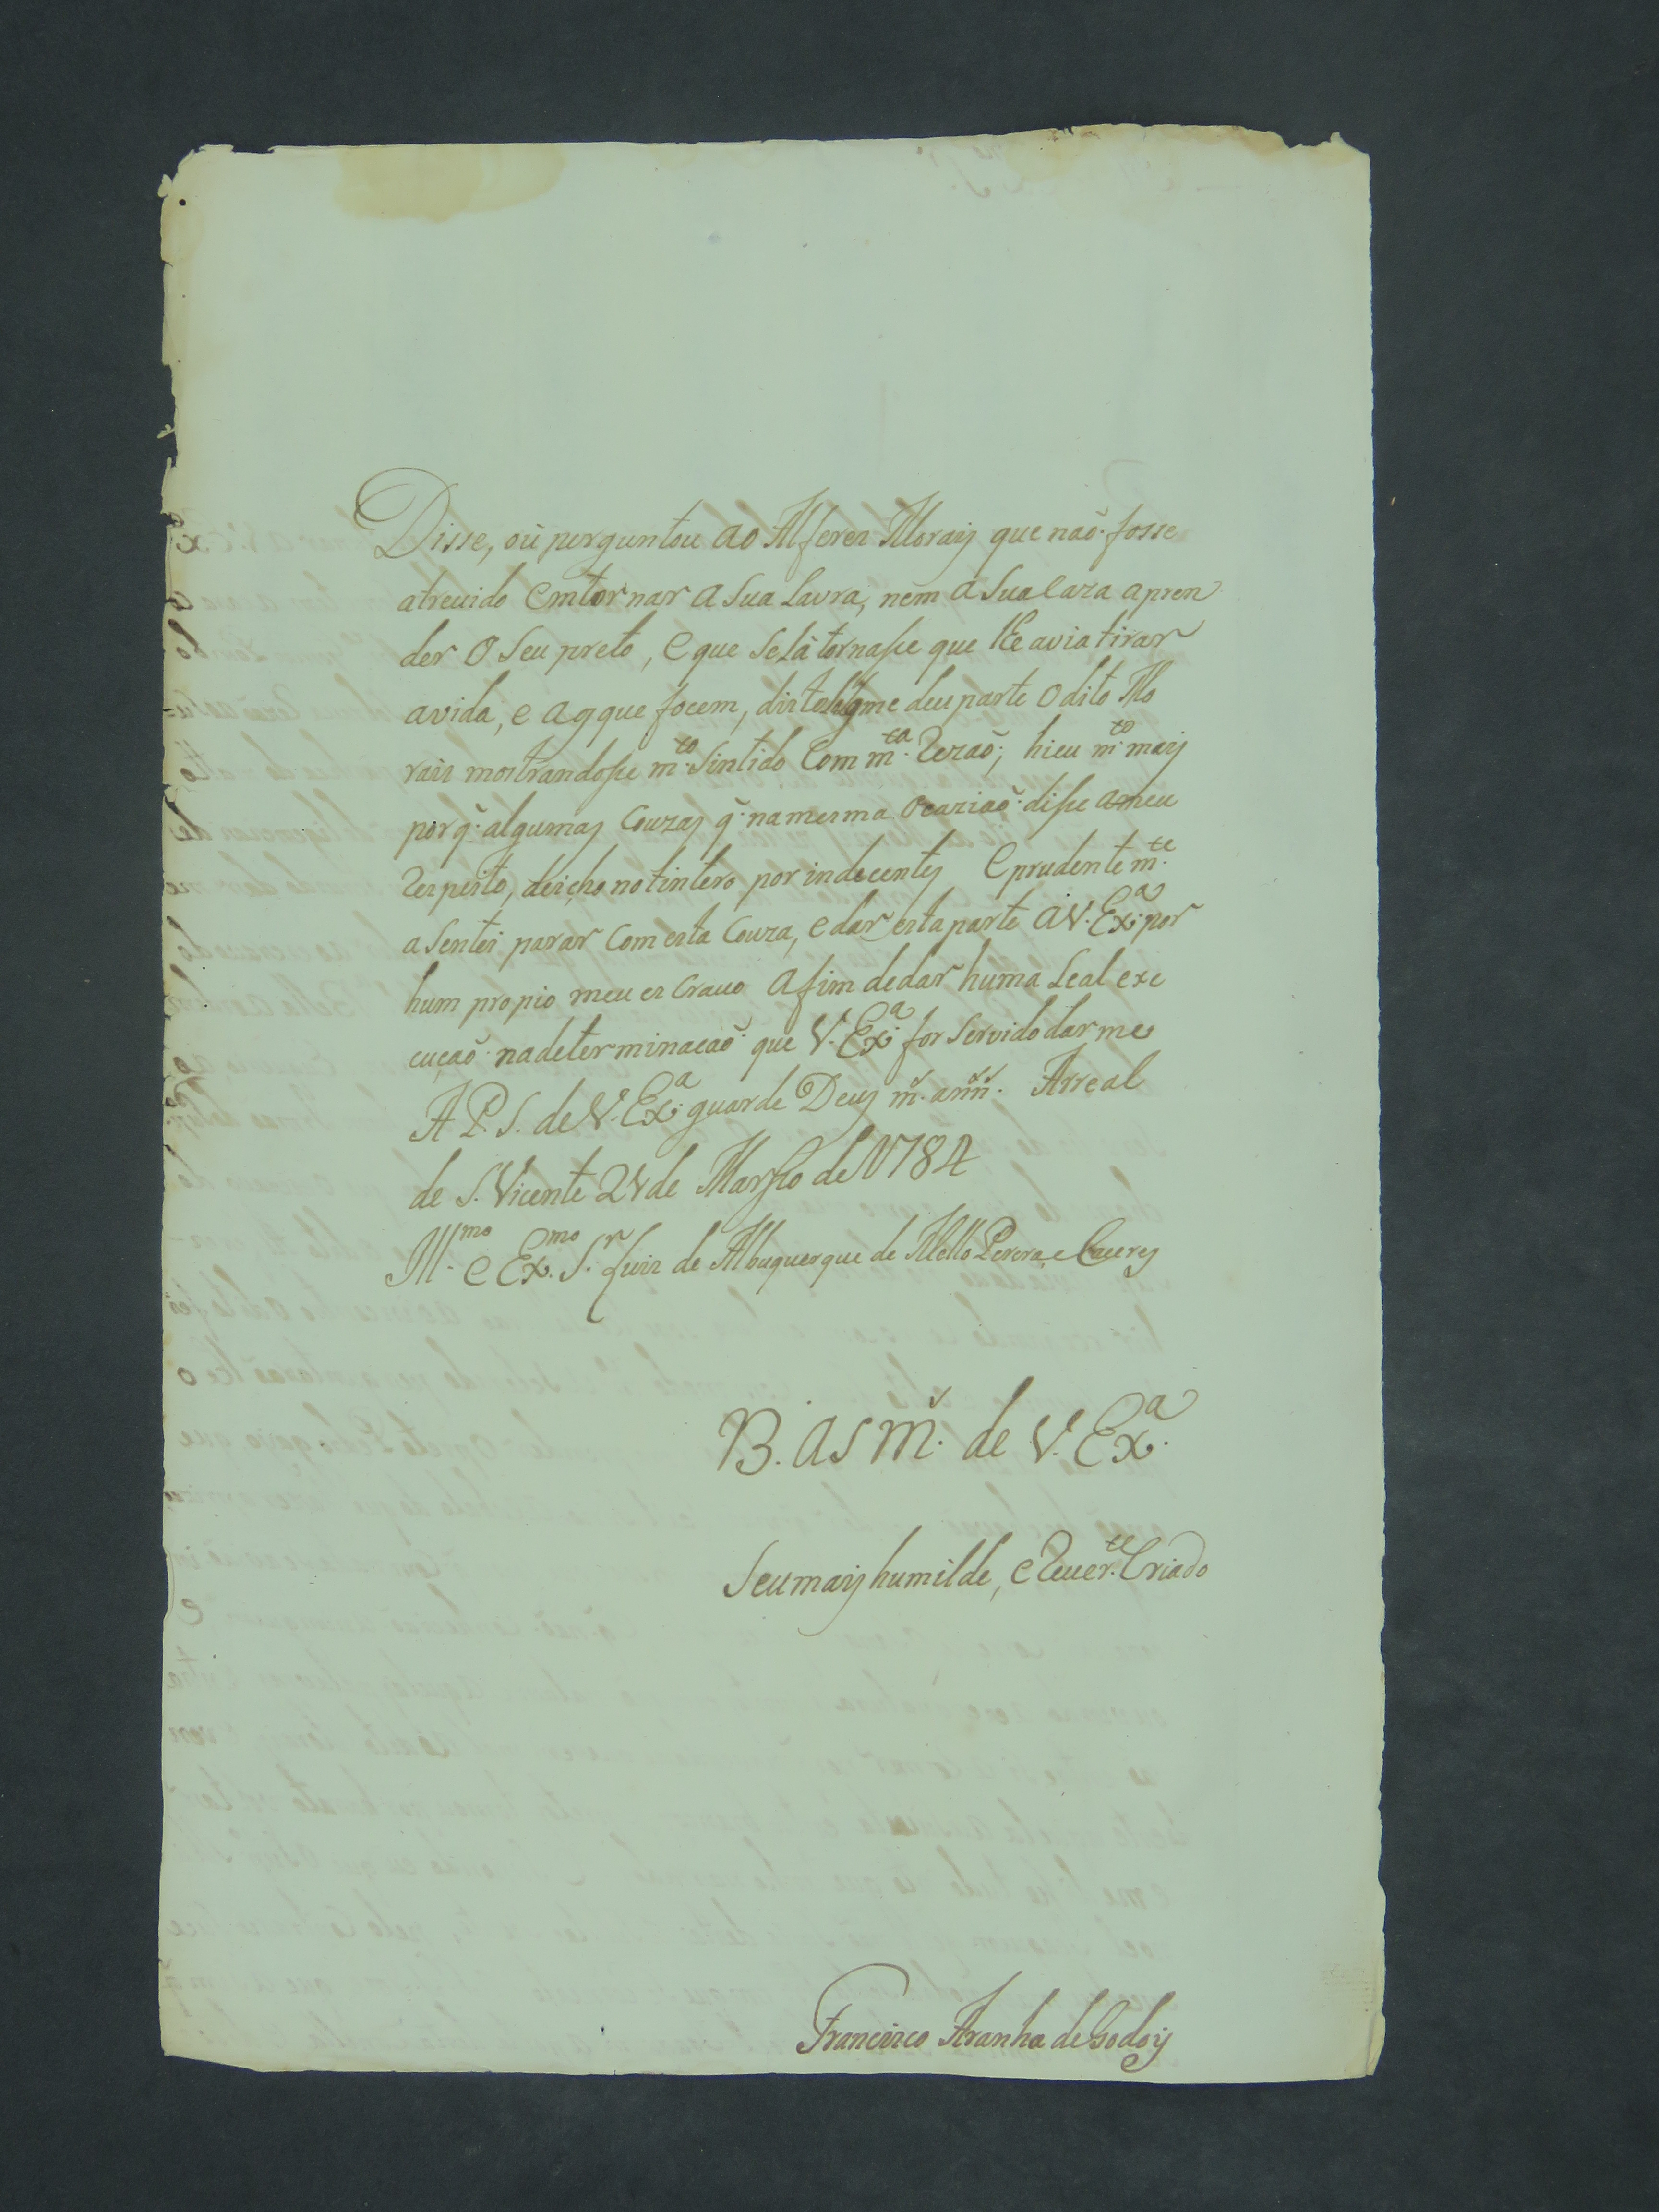 Disse, où perguntou ao Alferez Morais que naõ fosse
atreuido emtornar a Sua Lavra, nem a Sua Caza apren
der o Seu preto, e que Selâ tornasse que lhe avia tirar
avida, e aqque focem, disto me deu parte o dito Mo
rais mostrandosse m.to Sintido Com m.ta Rezaõ; hieu m.to mais
por q̃ algumas Couzas q̃ na mesma ocaziaõ disse ameu
Respeito, deicho no tintero por indecentes e prudente m.te
a Sentei parar Com esta Couza, e dar esta parte a V. Ex.a por
hum propio meu es Crauo a fim dedar huma Leal exe
cuçaõ na determinacaõ que V. Ex.a for Servido dar me
A P. S. de V. Ex.a guarde Deus m.s ann.s Arreal
de S. Vicente 24 de Marsso de 1784
Ill.mo e Ex.mo S.r Luis de Albuquerque de Mello Perera, e Caceres
B. as m.s de V. Ex.a
Seu mais humilde, e Reuer.te Criado
Francisco Aranha de Godoij